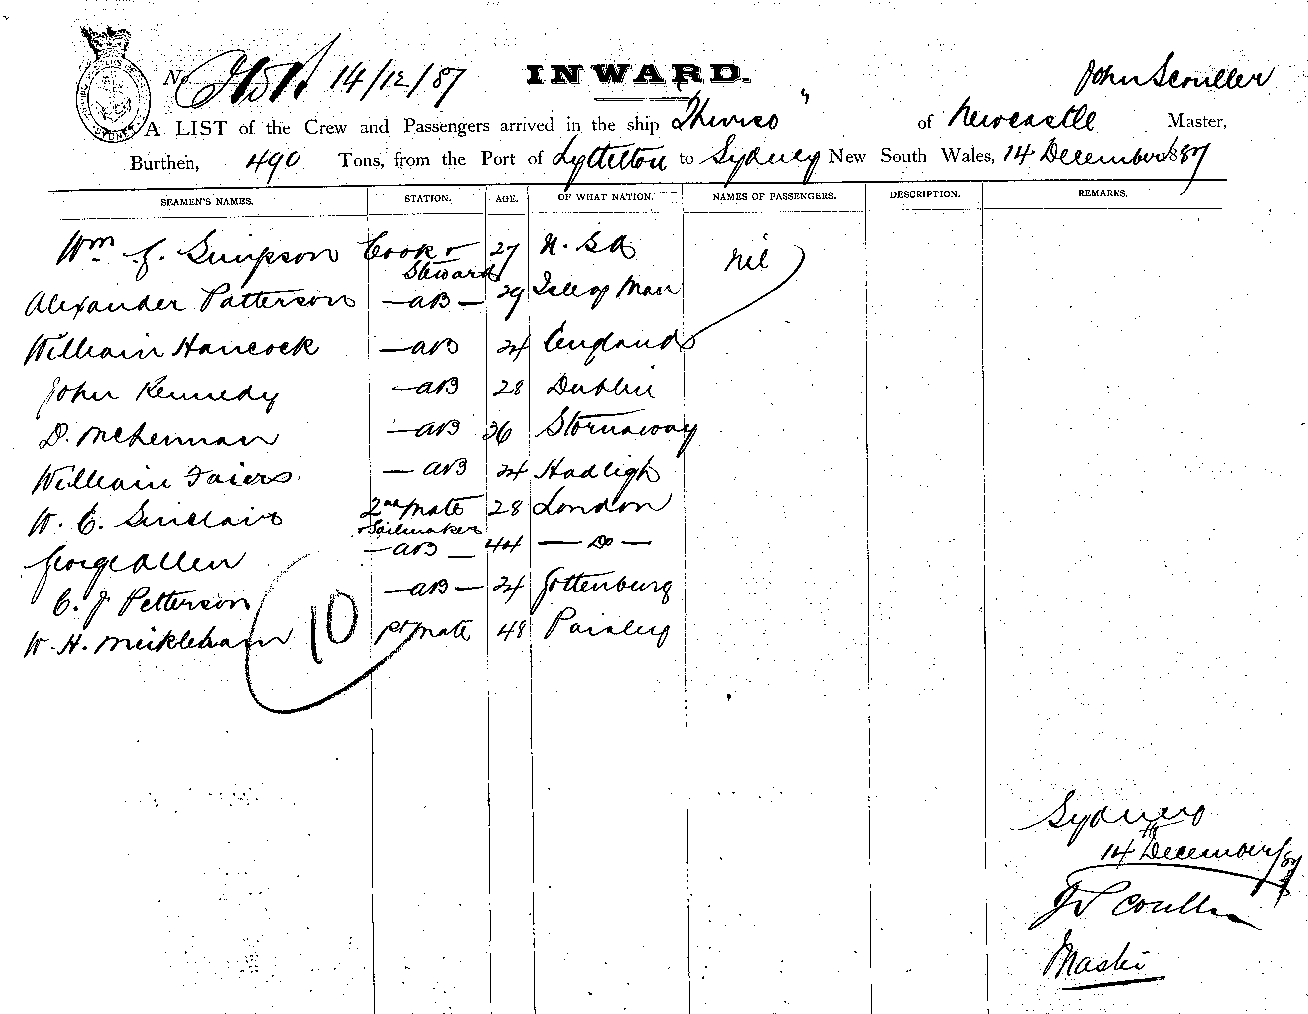 No 14/12/87 INWARD. John Scouller
A LIST of the Crew and Passengers arrived in the ship Thurso " of Newcastle Master,
Burthen, 490 Tons, from the Port of Lyttelton to Sydney New South Wales, 14 December 1887
SEAMEN'S NAMES. STATION. AGE. OF WHAT NATION. NAMES OF PASSENGERS. DESCRIPTION. REMARKS.
Wm J. Simpson Cook & Steward 27 nil
Alexander Patterson — AB — 29 Isle of Man
William Hancock — AB 24 England
John Kennedy — AB 28 Dublin
D. — AB 36 Stornaway
William — AB 24 Hadligh
W. C. Sinclair 2nd Mate & Sailmaker 28 London
George Allen — AB — 44 — Do —
C. J. Petterson — AB — 24 Gottenburg
W. H. Mickleham 1st Mate 48 Paisley
10
Sydney
14th December/87
J Scouller
Master